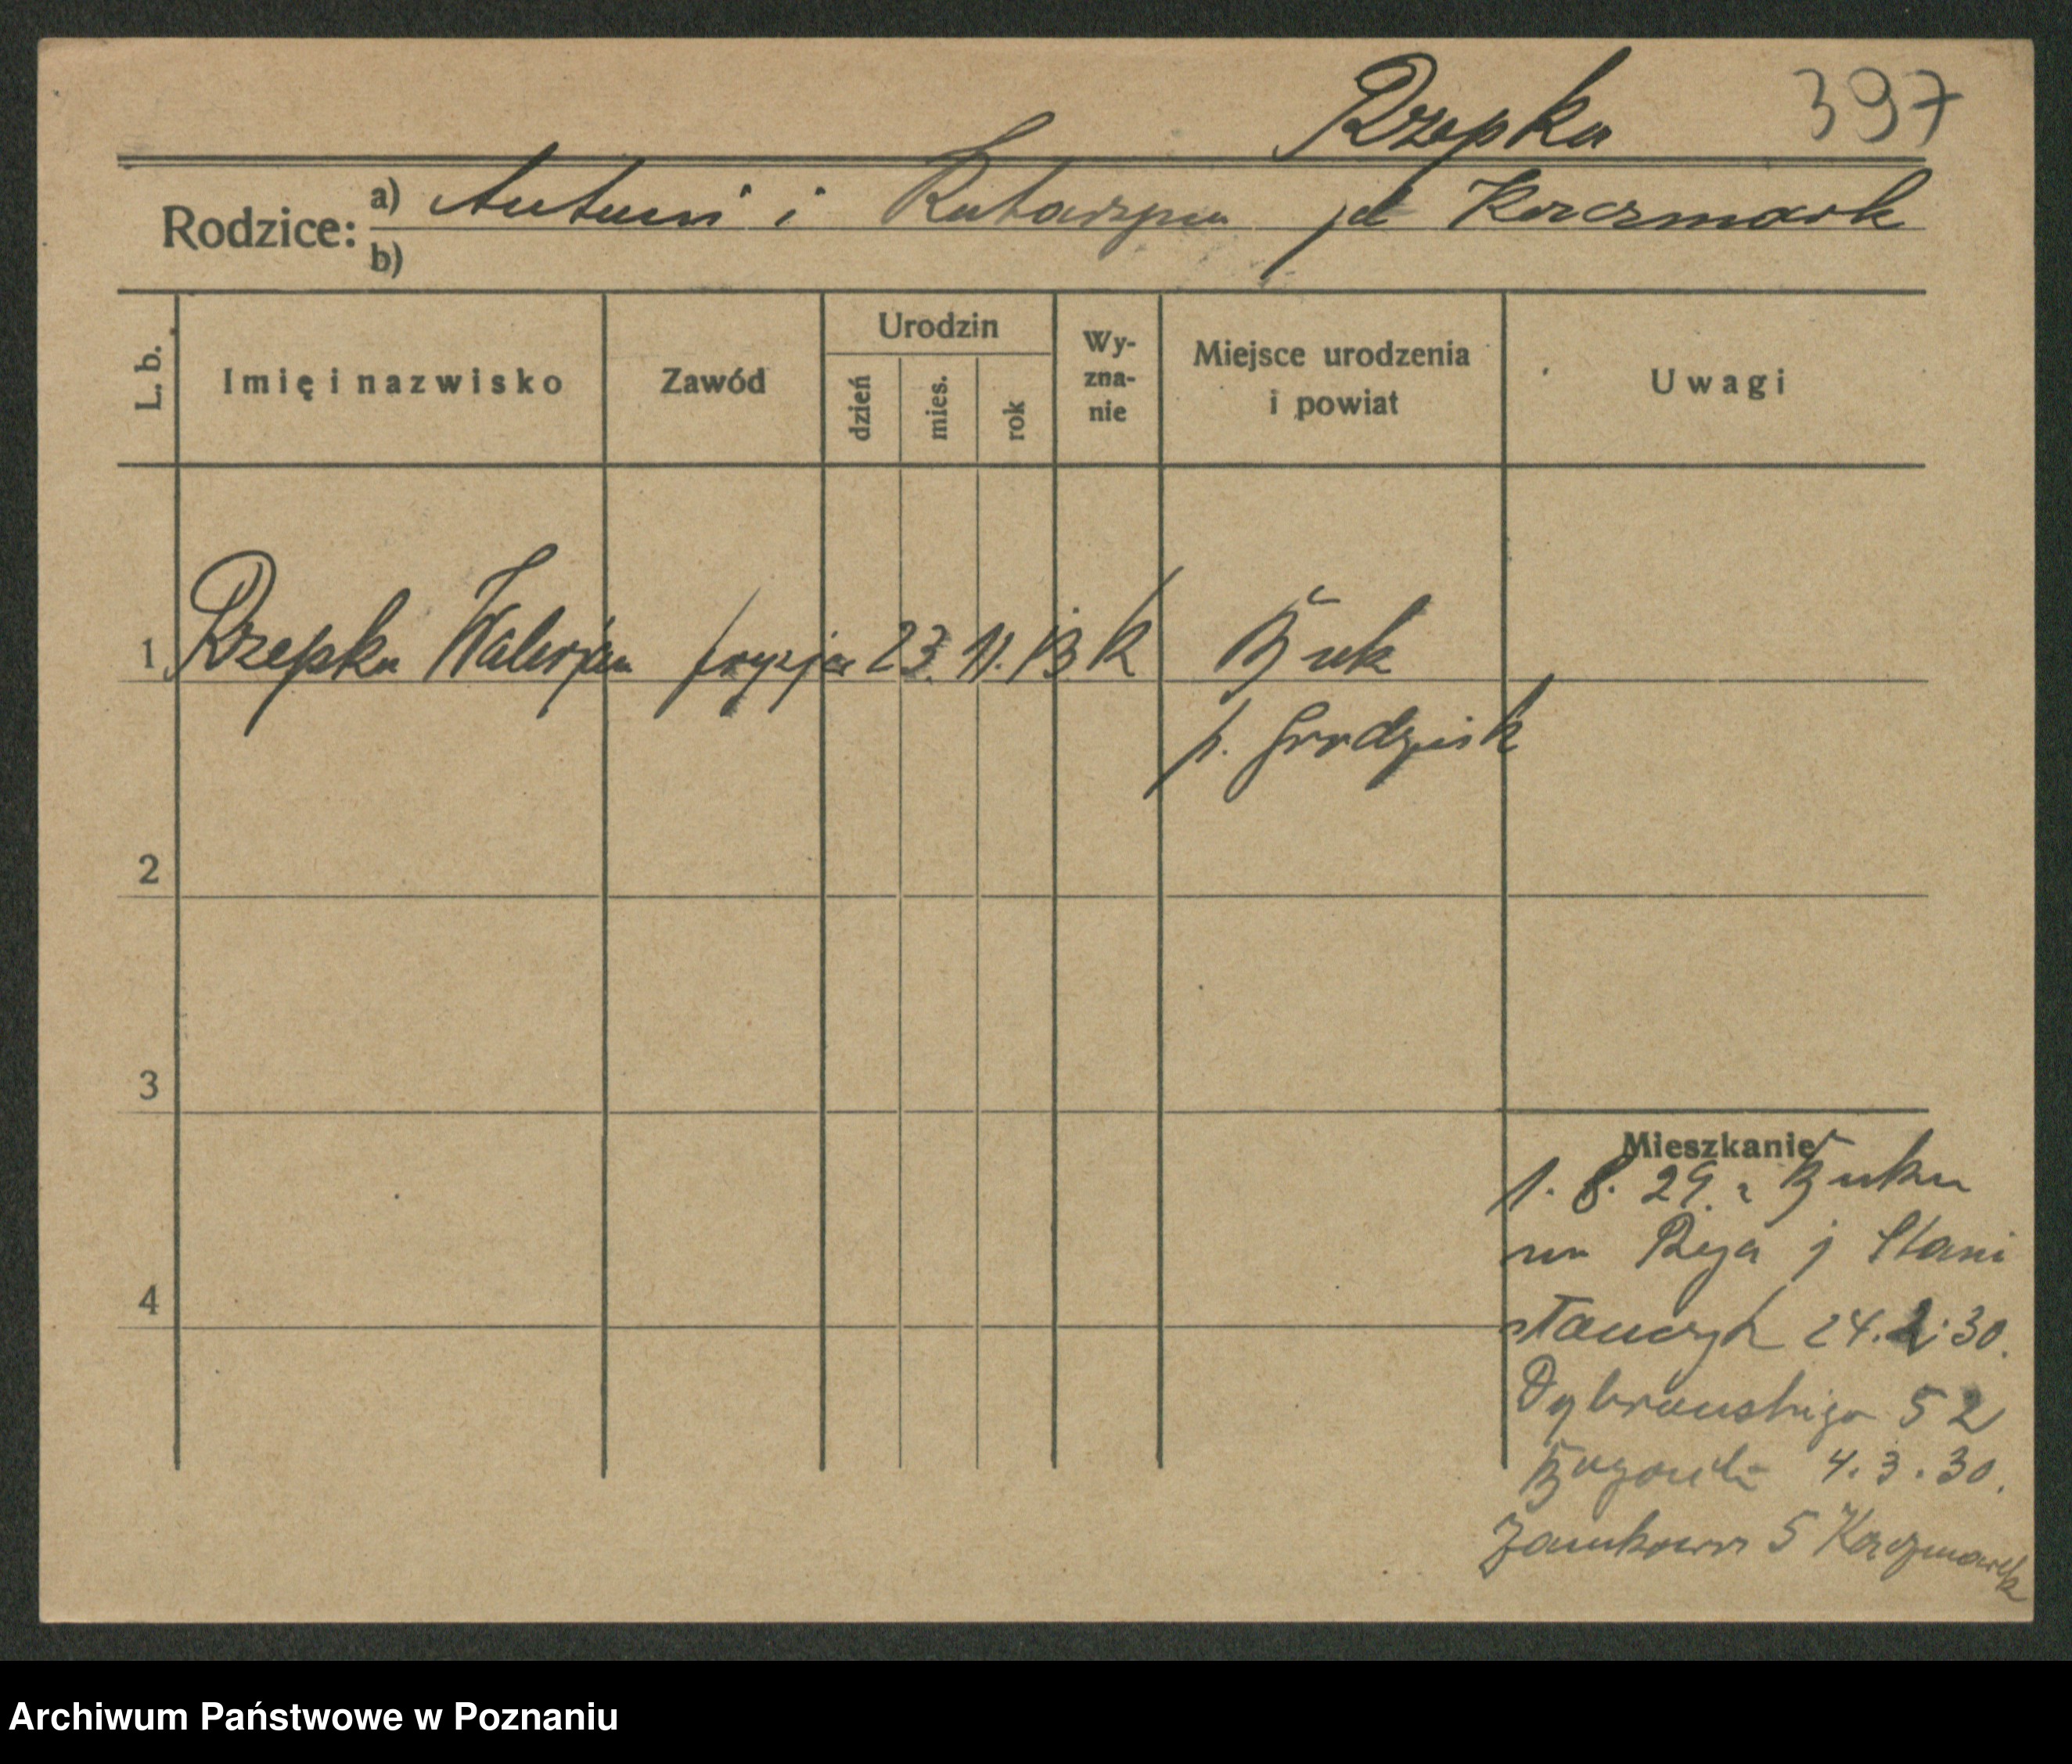 Rzepka 397
Rodzice:
a) Antoni i Katarzyna jd Kaczmarek
b)
L. b.
Imię i nazwisko
Zawód
Urodzin
dzień
mies.
rok
Wy-
zna-
nie
Miejsce urodzenia
i powiat
Uwagi
1 Rzepka Walerjan fryzjer 23. 11. 13 K Buk
p. Grodzisk
2
3
4
Mieszkanie
1. 8. 29. z Buku
na Reja j Stani
24. 2. 30.
Dąbrowskiego 52
4. 3. 30.
Zamkowa 5 Kaczmarek
Archiwum Państwowe w Poznaniu